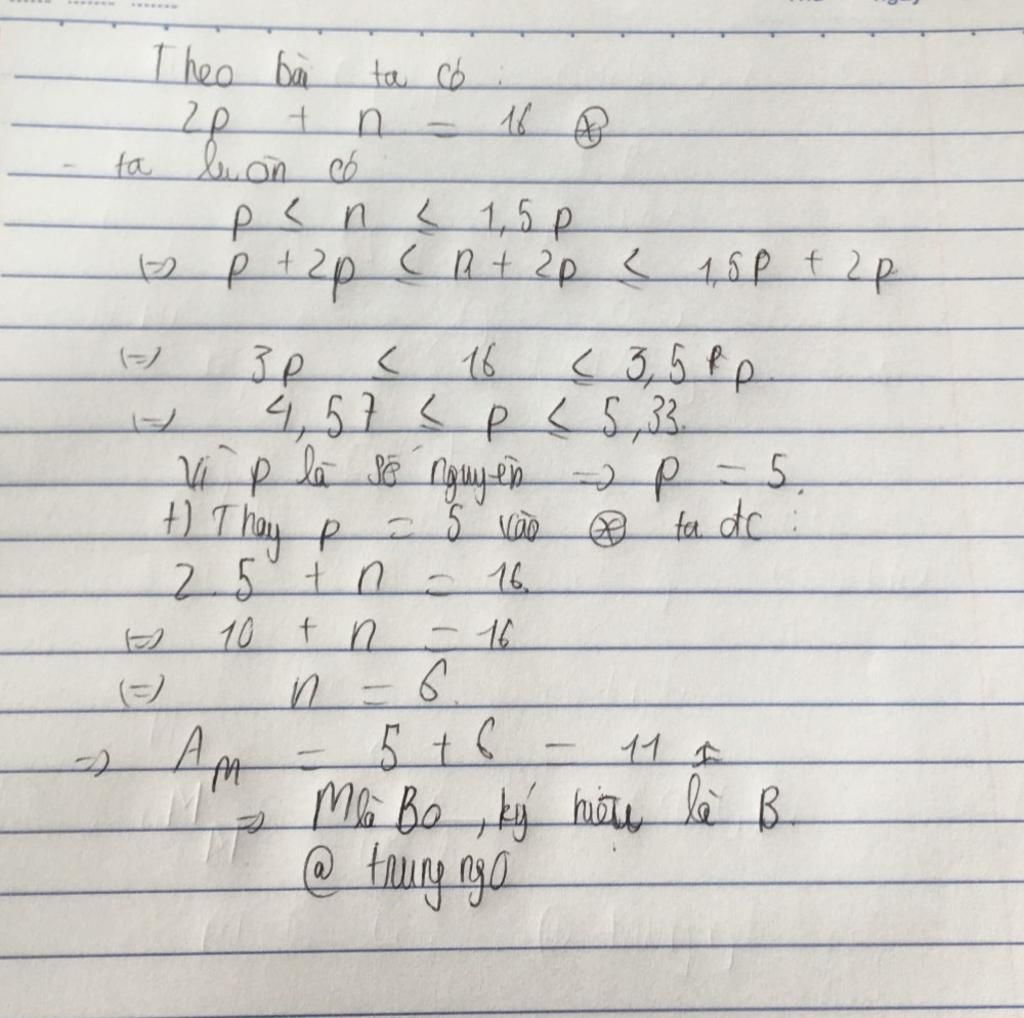 Theo bài ta có :
2p + n = 16 ⊛
- ta luôn có
p ≤ n ≤ 1,5 p
(=) p + 2p ≤ n + 2p ≤ 1,5p + 2p
(=) 3p ≤ 16 ≤ 3,5 p
(=) 4,57 ≤ p ≤ 5,33.
Vì p là số nguyên => p = 5.
+) Thay p = 5 vào ⊛ ta đc :
2.5 + n = 16.
(=) 10 + n = 16
(=) n = 6.
=> A_M = 5 + 6 = 11
=> M là Bo, ký hiệu là B.
@ trung ngo